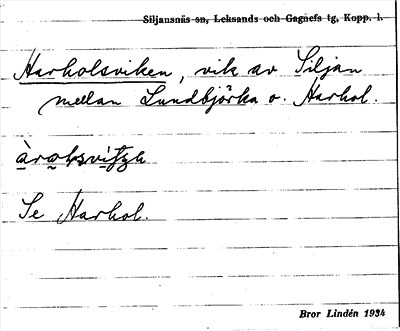 Siljansnäs sn, Leksands och Gagnefs tg, Kopp. l.
Harholsviken, vik av Siljan
mellan Sundbjörka o. Harhol.
Se Harhol.
Bror Lindén 1934